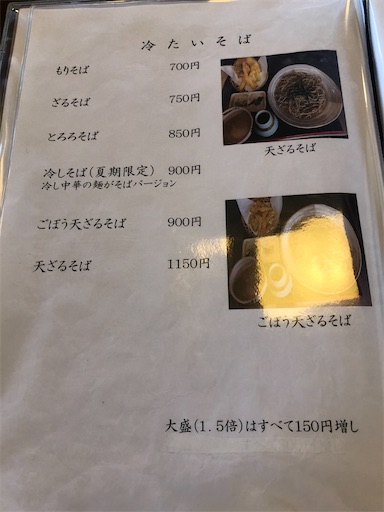 冷たいそば
もりそば 700円
ざるそば 750円
とろろそば 850円
冷しそば(夏期限定) 900円
冷し中華の麺がそばバージョン
ごぼう天ざるそば 900円
天ざるそば 1150円
天ざるそば
ごぼう天ざるそば
大盛(1.5倍)はすべて150円増し